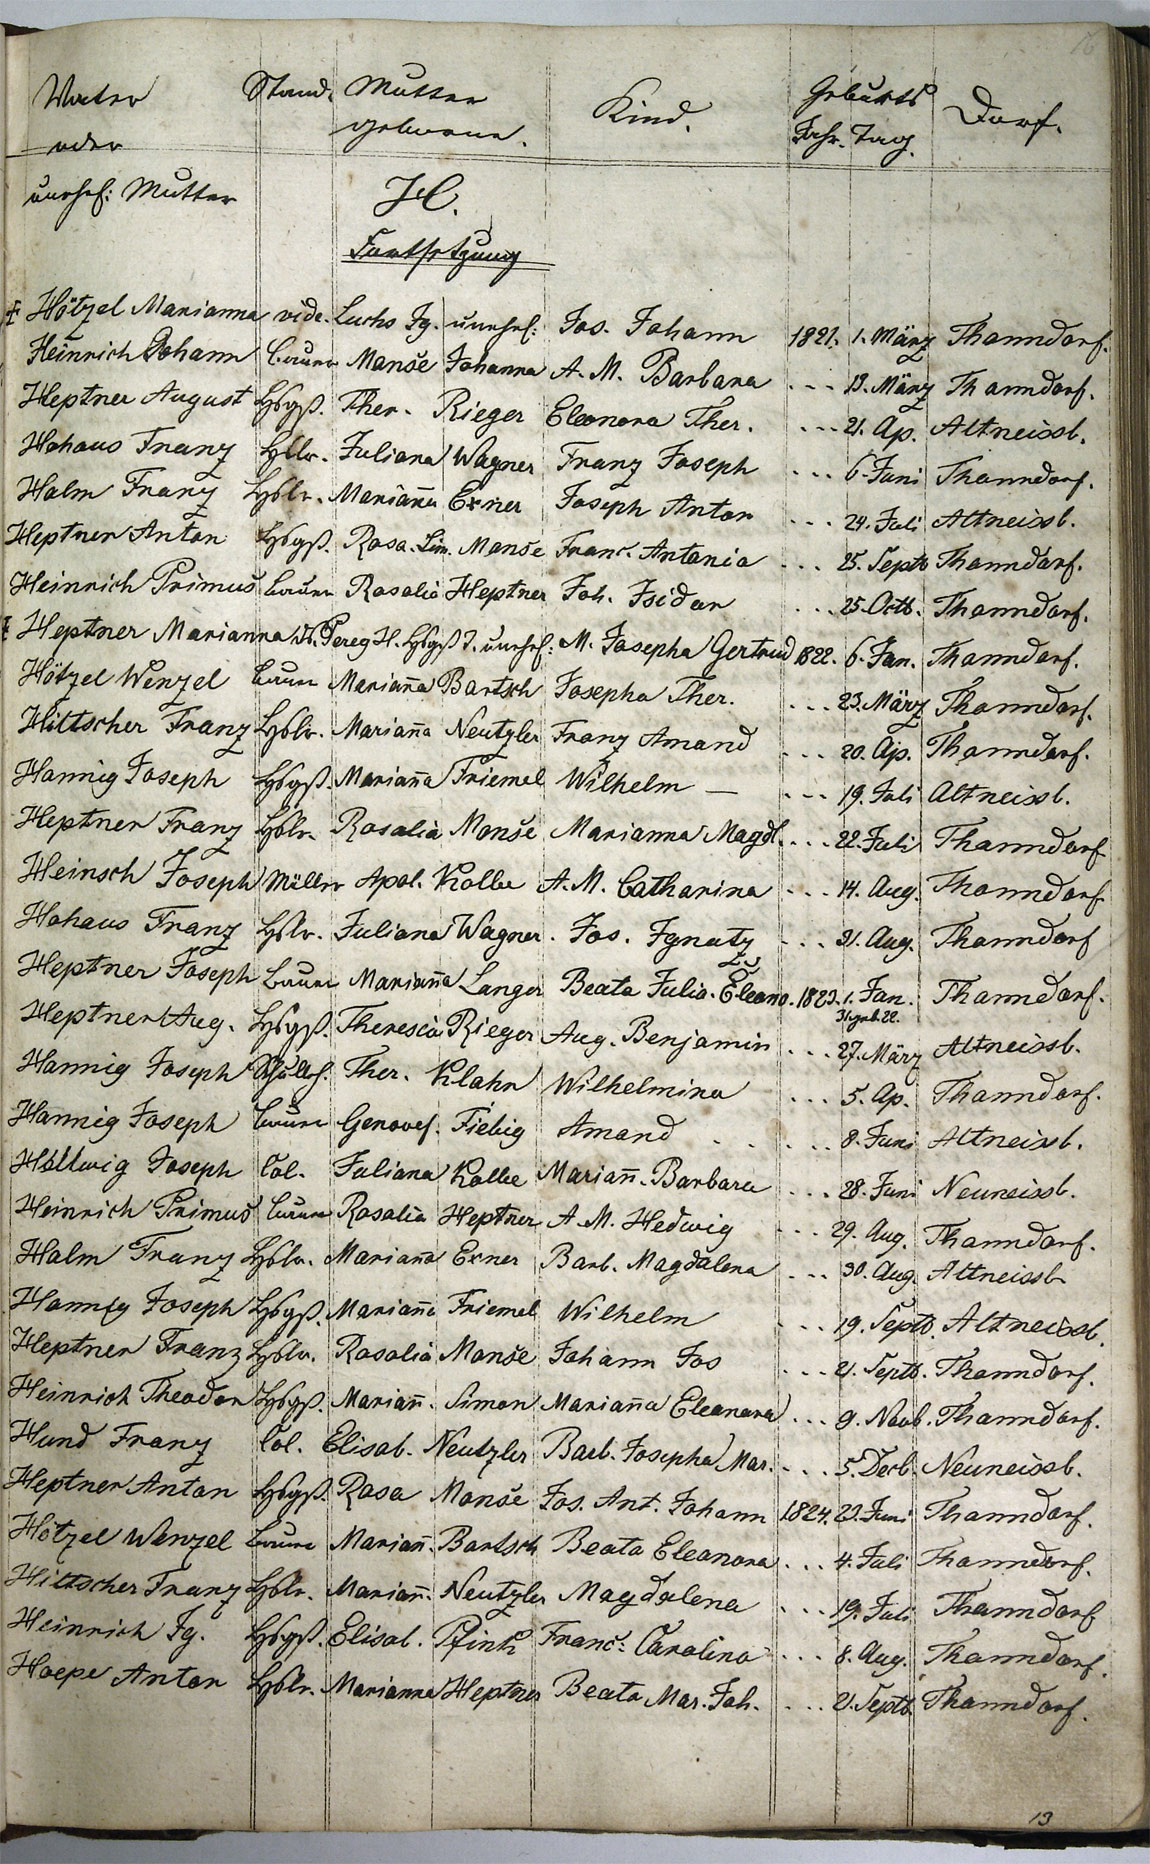 Vater Stand. Mutter Kind. Geburts Dorf.
oder geborene. Jahr. Tag.
unehel: Mutter H.
Fortsetzung
Hötzel Marianna vide. Luchs Ig. unehel: Jos. Johann 1821. 1. März Thanndorf.
Heinrich Johann Bauer Monse Johanna A. M. Barbara - - - 13. März Thanndorf.
Heptner August Hbgß. Ther. Rieger Eleonora Ther. - - - 21. Ap. Altneissb.
Hohaus Franz Hslr. Juliana Wagner Franz Joseph - - - 6. Juni Thanndorf.
Halm Franz Hslr. Mariana Exner Joseph Anton - - - 24. Juli Altneissb.
Heptner Anton Hbgß. Rosa. Sim. Monse Franc. Antonia - - - 25. Septb Thanndorf.
Heinrich Primus Bauer Rosalia Heptner Joh. Isidor - - - 25. Octb. Thanndorf.
Heptner Marianna d. Pereg H. Hbgß T. unehel: M. Josepha Gertrud 1822. 6. Jan. Thanndorf.
Hötzel Wenzel Bauer Mariana Bartsch Josepha Ther. - - - 23. März Thanndorf.
Hittscher Franz Hslr. Mariana Neutzler Franz Amand - - - 20. Ap. Thanndorf.
Hannig Joseph Hbgß. Mariana Friemel Wilhelm — - - - 19. Juli Altneissb.
Heptner Franz Hslr. Rosalia Monse Marianna Magdl. - - - 22. Juli Thanndorf
Heinsch Joseph Müller Apol. Kolbe A. M. Catharina - - - 14. Aug. Thanndorf
Hohaus Franz Hslr. Juliana Wagner. Jos. Ignatz - - - 31. Aug. Thanndorf
Heptner Joseph Bauer Mariana Langer Beata Julia. Eleono. 1823. 1. Jan. Thanndorf.
31. geb. 22.
Heptner Aug. Hbgß. Theresia Rieger Aug. Benjamin - - - 27. März Altneissb.
Hannig Joseph Schullh. Ther. Klahr Wilhelmina - - - 5. Ap. Thanndorf.
Hannig Joseph Bauer Genovef. Fiebig Amand - - - 8. Juni Altneissb.
Hollwig Joseph Col. Juliana Kolbe Mariañ. Barbara - - - 28. Juni Neuneissb.
Heinrich Primus Bauer Rosalia Heptner A. M. Hedwig - - - 29. Aug. Thanndorf.
Halm Franz Hslr. Mariana Exner Barb. Magdalena - - - 30. Aug. Altneissb
Hannig Joseph Hbgß. Mariana Friemel Wilhelm - - - 19. Septb. Altneissb.
Heptner Franz Hslr. Rosalia Monse Johann Jos - - - 21. Septb. Thanndorf.
Heinrich Theodor Hbgß. Mariañ. Simon Mariana Eleonora - - - 9. Novb. Thanndorf.
Hund Franz Col. Elisab. Neutzler Barb. Josepha Mar. - - - 5. Decb. Neuneissb.
Heptner Anton Hbgß. Rosa Monse Jos. Ant. Johann 1824. 23. Juni Thanndorf.
Hötzel Wenzel Bauer Mariañ. Bartsch Beata Eleonora - - - 4. Juli Thanndorf.
Hittscher Franz Hslr. Mariañ. Neutzler Magdalena - - - 19. Juli Thanndorf
Heinrich Ig. Hbgß. Elisab. Pfink Franc: Carolina - - - 8. Aug. Thanndorf.
Hoepe Anton Hslr. Marianna Heptner Beata Mar. Joh. - - - 21. Septb. Thanndorf.
13